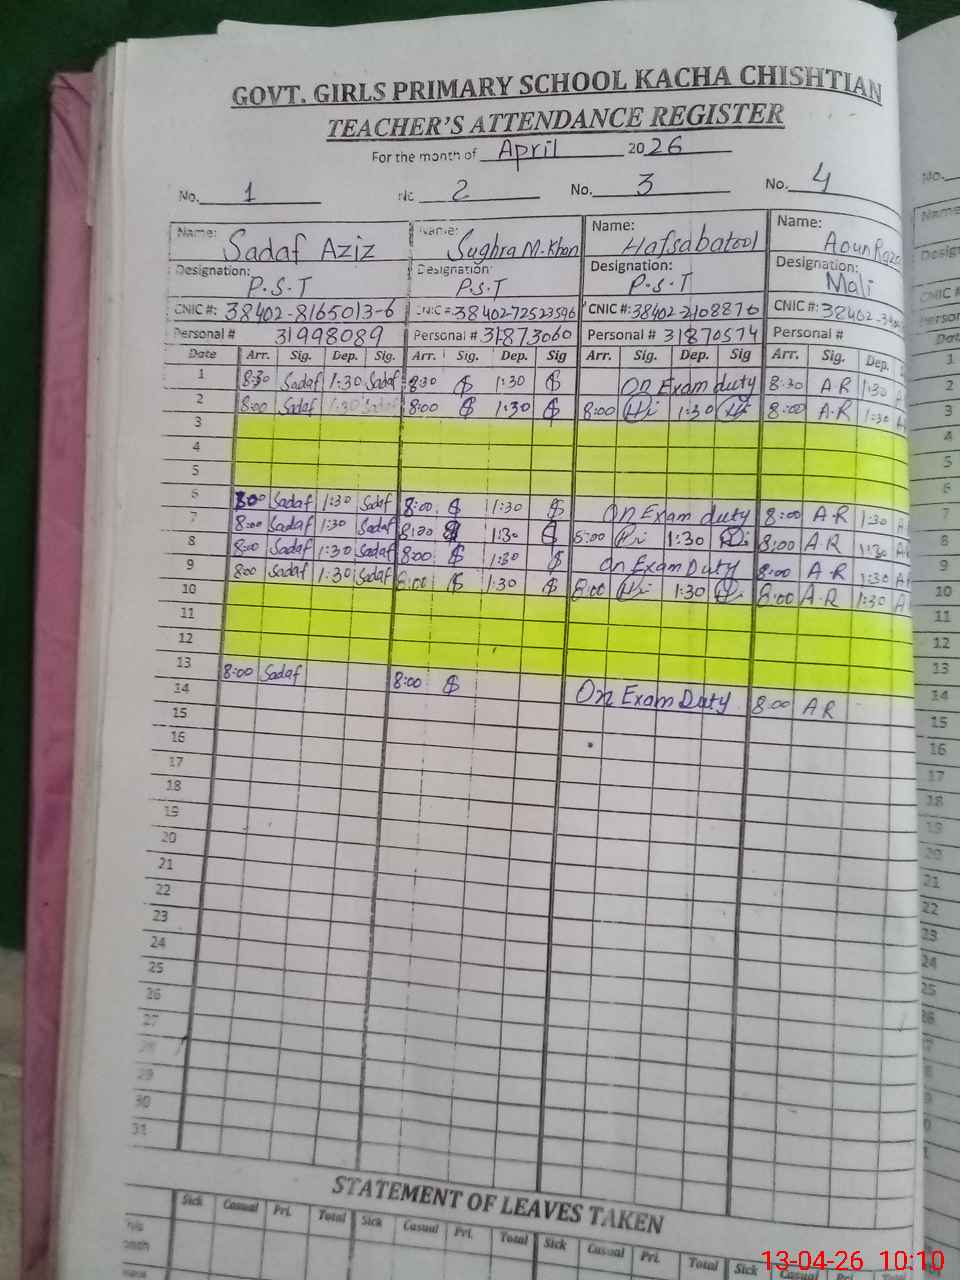 GOVT. GIRLS PRIMARY SCHOOL KACHA CHISHTIAN
TEACHER'S ATTENDANCE REGISTER
For the month of April 2026
No. 1 No. 2 No. 3 No. 4
Name: Sadaf Aziz Name: Sughra M.Khan Name: Hafsabatool Name: Aoun Raza
Designation: P.S.T Designation: P.S.T Designation: P.S.T Designation: Mali
CNIC #: 38402-8165013-6 CNIC #: 38402-72523596 CNIC #: 38402-2108876 CNIC #: 38402-
Personal # 31998089 Personal # 31873060 Personal # 31870574 Personal #
Date Arr. Sig. Dep. Sig. Arr. Sig. Dep. Sig Arr. Sig. Dep. Sig Arr. Sig. Dep.
1 8:30 Sadaf 1:30 Sadaf 8:30 $ 1:30 $ On Exam duty 8:30 A R 1:30 A
2 8:00 Sadaf 1:30 Sadaf 8:00 $ 1:30 $ 8:00 1:30 8:00 A.R 1:30 A
3
4
5
6 8:00 Sadaf 1:30 Sadaf 8:00 $ 1:30 $ On Exam duty 8:00 A.R 1:30 A
7 8:00 Sadaf 1:30 Sadaf 8:00 $ 1:30 $ 8:00 1:30 8:00 A.R 1:30 A
8 8:00 Sadaf 1:30 Sadaf 8:00 $ 1:30 $ On Exam Duty 8:00 A R 1:30 A
9 8:00 Sadaf 1:30 Sadaf 8:00 $ 1:30 $ 8:00 1:30 8:00 A.R 1:30 A
10
11
12
13 8:00 Sadaf 8:00 $ On Exam Duty 8:00 A R
14
15
16
17
18
19
20
21
22
23
24
25
26
27
28
29
30
31
STATEMENT OF LEAVES TAKEN
Sick Casual Pri. Total Sick Casual Pri. Total Sick Casual Pri. Total Sick Casual
13-04-26 10:10